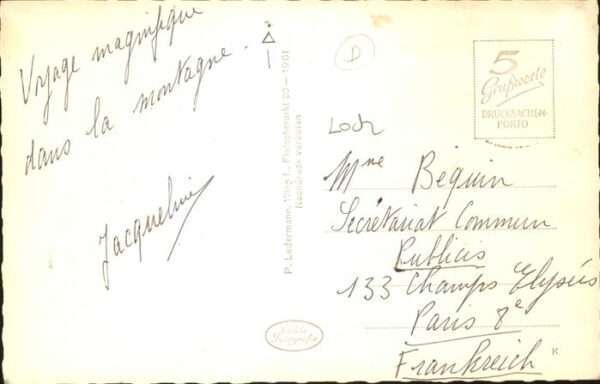 Voyage magnifique
dans la montagne.
Jacqueline
P. Ledermann, Wien I., Fleischmarkt 20 – 1961
Nachdruck verboten
D
5
Grußworte
DRUCKSACHEN-
PORTO
Loch
Mme Béquin
Secrétariat Commun
Publicis
133 Champs Elysées
Paris 8e
Frankreich
K
Echte